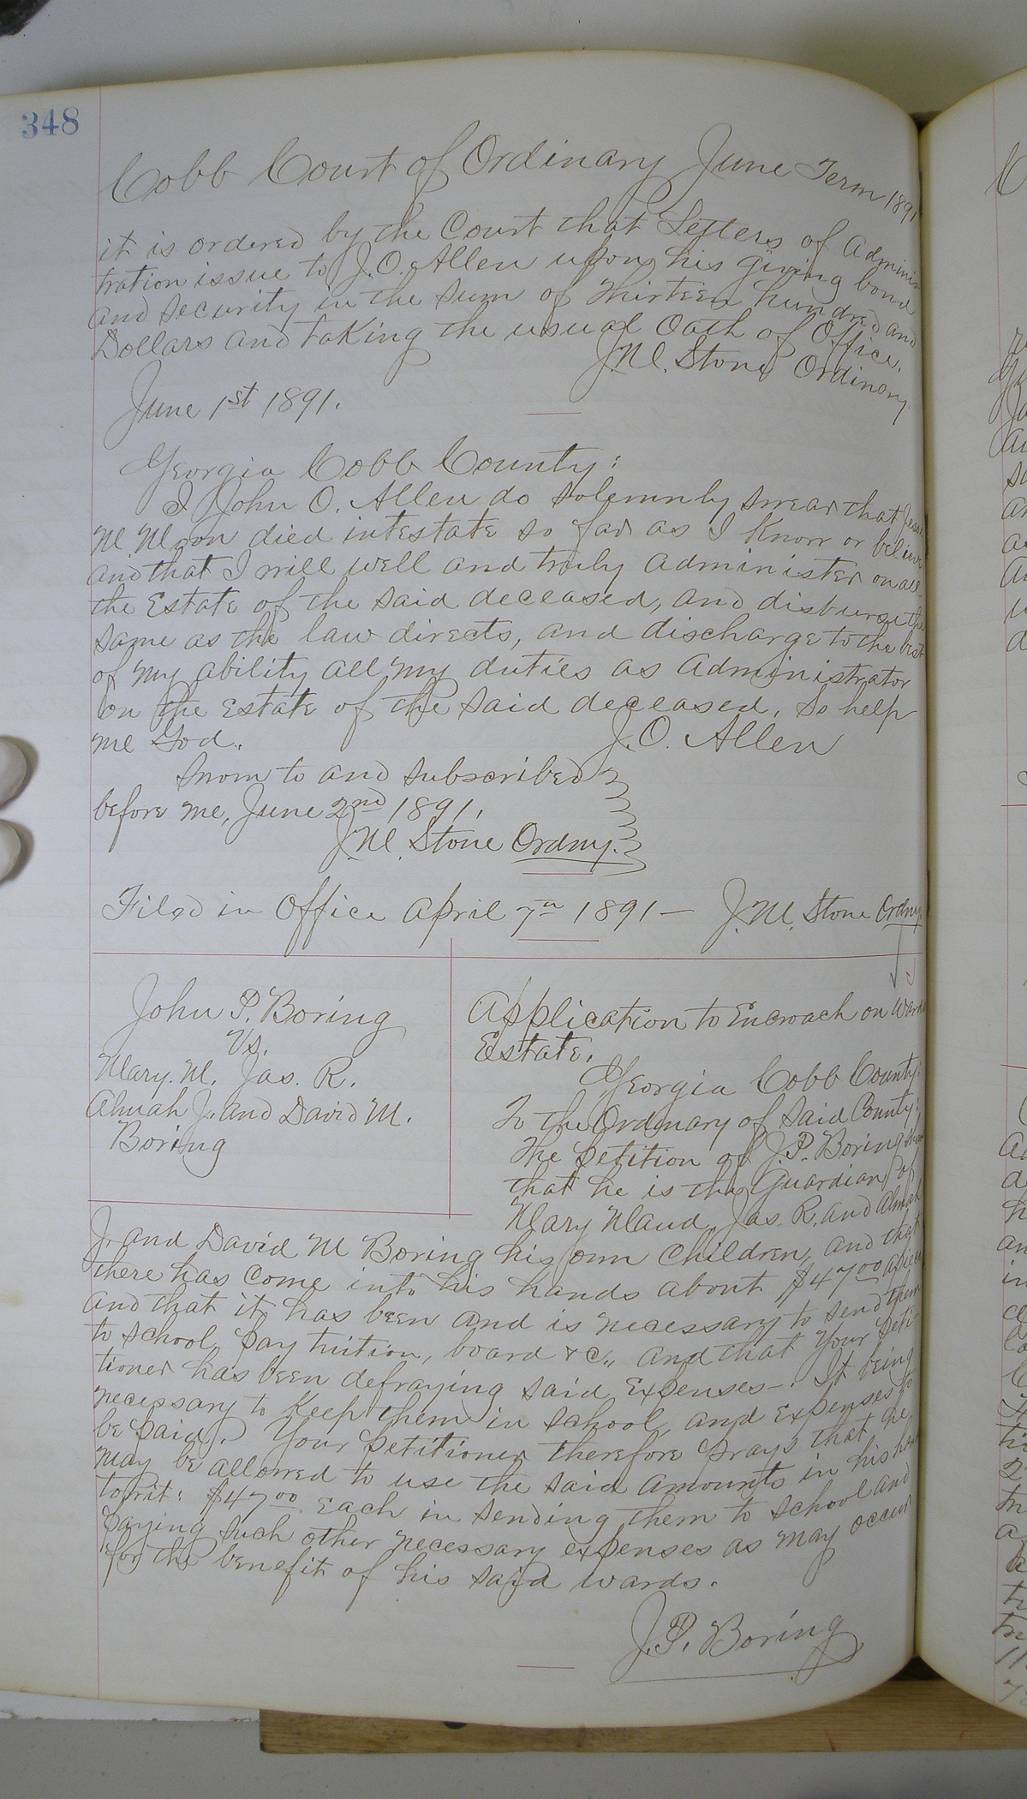 348
Cobb Court of Ordinary June Term 1891
it is ordered by the Court that Letters of Adminis
tration issue to J.O. Allen upon his giving bond
and security in the sum of Thirteen hundred and
Dollars and taking the usual Oath of Office.
J.M. Stone Ordinary
June 1st 1891.
Georgia Cobb County:
I John O. Allen do solemnly swear that
M. Moon died intestate so far as I know or believe
and that I will well and truly administer on all
the Estate of the said deceased, and disburse the
same as the law directs, and discharge to the best
of my ability all my duties as Administrator
on the Estate of the said deceased. So help
me God.
J.O. Allen
Sworn to and subscribed
before me, June 2nd 1891.
J.M. Stone Ordny.
Filed in Office April 7th 1891— J.M. Stone Ordny.
John P. Boring
Vs.
Mary. M. Jas. R.
Almah J. and David M.
Boring
Application to Encroach on Wards
Estate.
Georgia Cobb County.
To the Ordinary of Said County:
The Petition of J.P. Boring
that he is the Guardian of
Mary Maud, Jas. R. and Almah
J. and David M Boring his own children, and that
there has come into his hands about $47 00 apiece
and that it has been and is necessary to send them
to school, pay tuition, board &c., and that Your Peti
tioner has been defraying said Expenses—. It being
necessary to keep them in school, and Expenses to
be paid. Your Petitioner therefore prays that he
may be allowed to use the said amounts in his
towit: $47 00 each in sending them to school and
paying such other necessary expenses as may occur
for the benefit of his said wards.
J.P. Boring